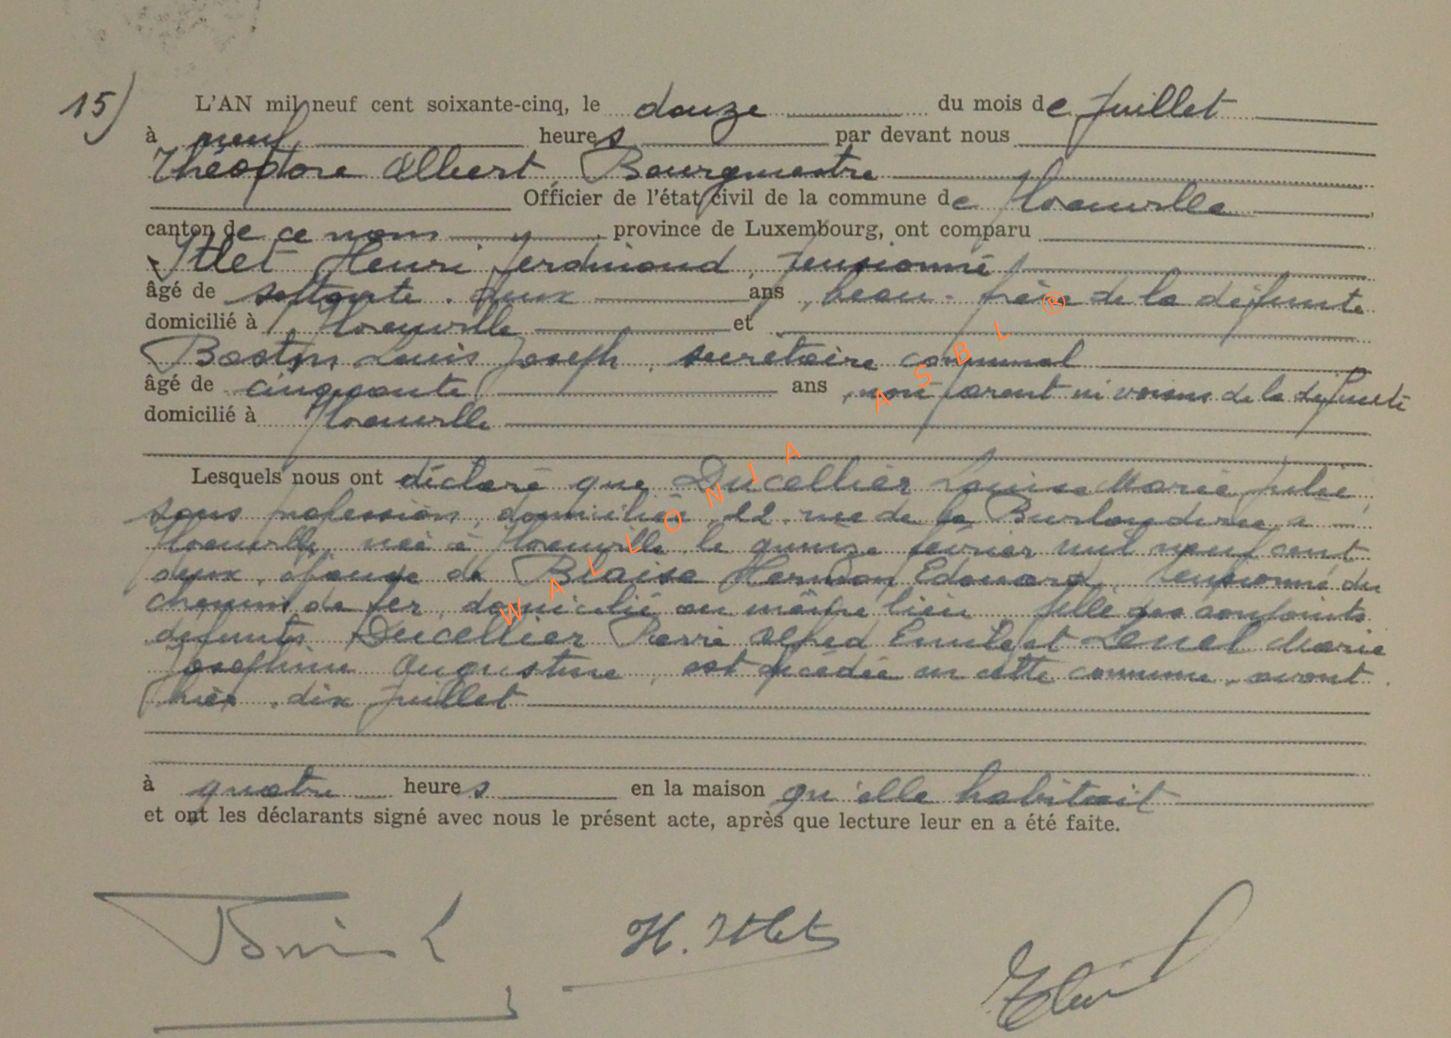 15) L'AN mil neuf cent soixante-cinq, le douze du mois de Juillet
à neuf heures par devant nous
Théodore Albert, Bourgmestre
Officier de l'état civil de la commune de
canton de ce nom, province de Luxembourg, ont comparu
Itlet Henri Ferdinand, pensionné
âgé de septante-deux ans, beau-frère de la défunte
domicilié à et
Bastin Louis Joseph, secrétaire communal
âgé de cinquante ans, non parent ni voisin de la défunte
domicilié à
Lesquels nous ont déclaré que Ducellier Louise Marie Julie
sans profession, domiciliée 22 rue de la à
née à le quinze février mil neuf cent
deux, épouse de Blaise Edouard, pensionné du
chemin de fer, domicilié au même lieu fille des conjoints
défunts Ducellier Pierre Alfred Emile et Marie
Joséphine Augustine, est décédée en cette commune, avant
hier, dix juillet
à quatre heures en la maison qu'elle habitait
et ont les déclarants signé avec nous le présent acte, après que lecture leur en a été faite.
H. Itlet
WALLONIA ASBL ®